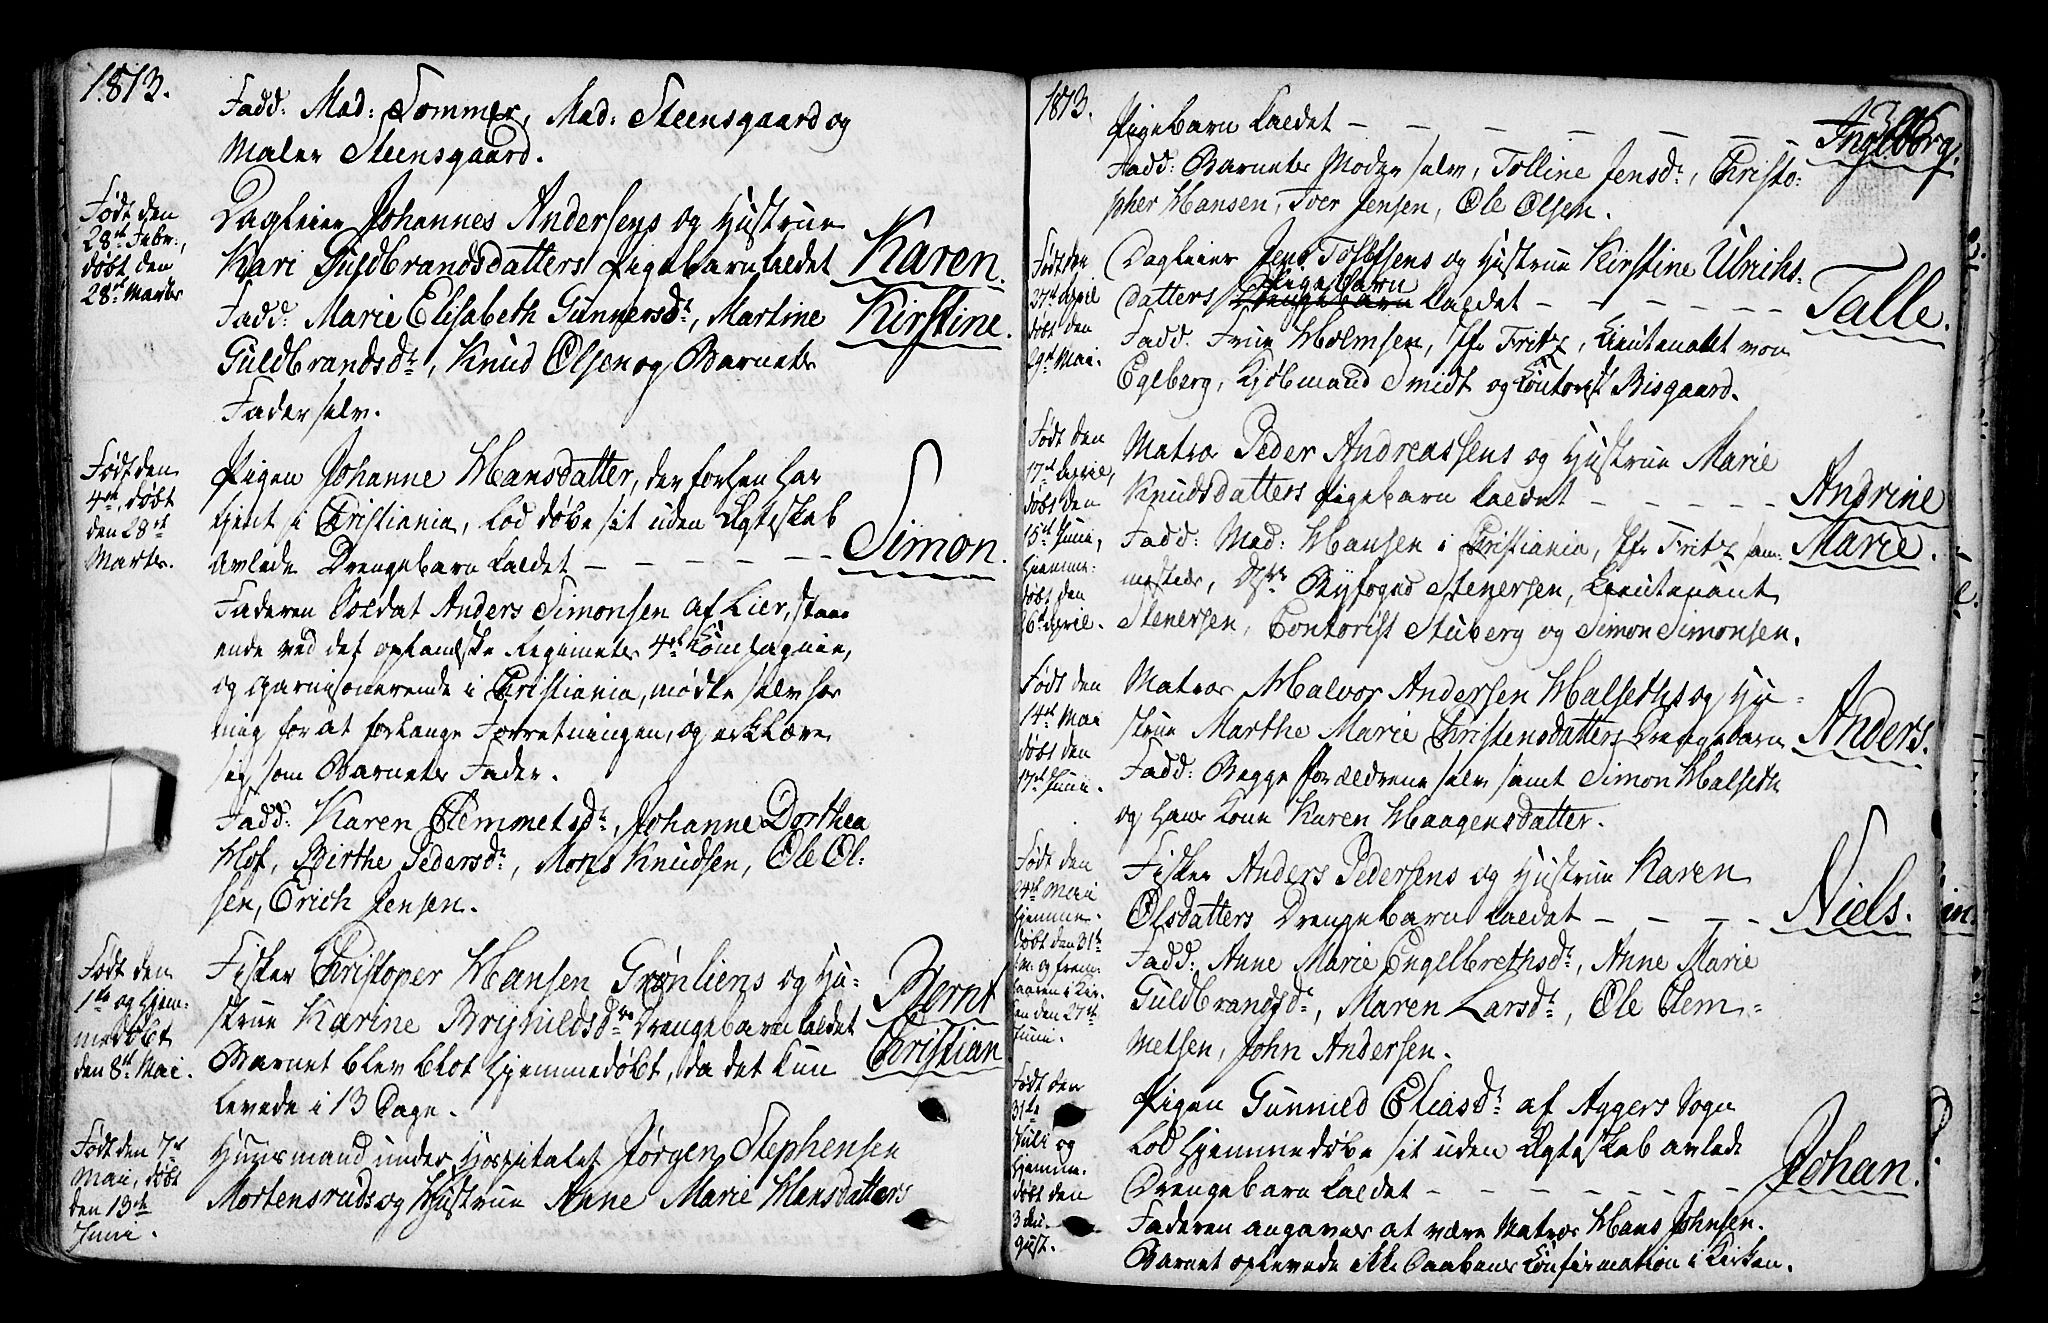 1813.
Fadd: Mad: Sommer, Mad: Steensgaard og
Maler Steensgaard.
Født den
28de Febr.,
døbt den
28de Marts
Dagleier Johannes Andersens og Hustrue
Kari Guldbrandsdatters Pigebarn kaldet Karen
Kirstine.
Fadd: Marie Elisabeth Gunnersdr, Martine
Guldbrandsdr, Knud Olsen og Barnets
Fader selv.
Født den
4de, døbt
den 28de
Marts.
Pigen Johanne Hansdatter, der forhen har
tjent i Christiania, lod døbe sit uden Ægteskab
avlede Drengebarn kaldet — — — — — — Simon.
Faderen Soldat Anders Simonsen af Lier, staae
ende ved det oplandske Regiments 4de Compagnie,
og garnisonerende i Christiania, mødte selv hos
mig for at forlange Forretningen, og erklære
sig som Barnets Fader.
Fadd: Karen Clemmetsdr, Johanne Dorthea
Hof, Birthe Pedersdr, Mons Knudsen, Ole Ol:
sen, Erich Jensen.
Født den
1ste og hjem:
medøbt
den 8de Mai.
Fisker Christoper Hansen Grønliens og Hu:
strue Karine Brynildsdrs Drengebarn kaldet Bernt
Christian
Barnet blev blot hjemmedøbt, da det kun
levede i 13 Dage.
Født den 7de
Mai, døbt
den 13de
Juni.
Huusmand under Hospitalet Jørgen Stephensen
Mortensruds og Hustrue Anne Marie Hansdatters
1813.
Pigebarn kaldet — — — — — — — Ingeborg.
Fadd: Barnets Moder selv, Tolline Jensdr, Christo:
pher Hansen, Toer Jensen, Ole Olsen.
Født den
27de April
døbt den
29de Mai.
Dagleier Jens Tollefsens og Hustrue Kirstine Ulrichs:
Pigebarn
datters Drengebarn kaldet — — — — — — Talle.
Fadd: Frue Holmsen, Jfr Fritz, Lieutenant von
Egeberg, Kjøbmand Smidt og Contorist Bisgaard.
Født den
17de April,
døbt den
15de Juni,
hjemme:
døbt den
26de April.
Matros Peder Andreassens og Hustrue Marie
Knudsdatters Pigebarn kaldet — — — — — Andrine
Marie.
Fadd: Mad: Hansen i Christiania, Jfr Fritz sam:
mesteds, Byfoged Stenersen, Lieutenant
Stenersen, Contorist Stuberg og Simon Simonsen.
Født den
14de Mai
døbt den
17de Juni.
Matros Halvor Andersen Halseths og Hu:
strue Marthe Marie Christensdatters Drengebarn Anders.
Fadd: Begge Forældrene selv samt Simon Halseth
og hans Kone Karen Haagensdatter.
Født den
24de Mai
hjemme:
døbt den 31te
s. M. og frem:
baaren i Kir:
ken den 27de
Juni.
Fisker Anders Pedersens og Hustrue Karen
Olsdatters Drengebarn kaldet — — — — Niels.
Fadd: Anne Marie Engelbrethsdr, Anne Marie
Guldbrandsdr, Maren Larsdr, Ole Clem:
metsen, John Andersen.
Født den
31te
Juli og
hjemme:
døbt den
3 Au:
gust.
Pigen Gunnild Eliasdr af Aggers Sogn
lod hjemmedøbe sit uden Ægteskab avlede
Drengebarn kaldet — — — — — — — Johan.
Faderen angaves at være Matros Hans Johnsen.
Barnet oplevede ikke Daabens Confirmation i Kirken.